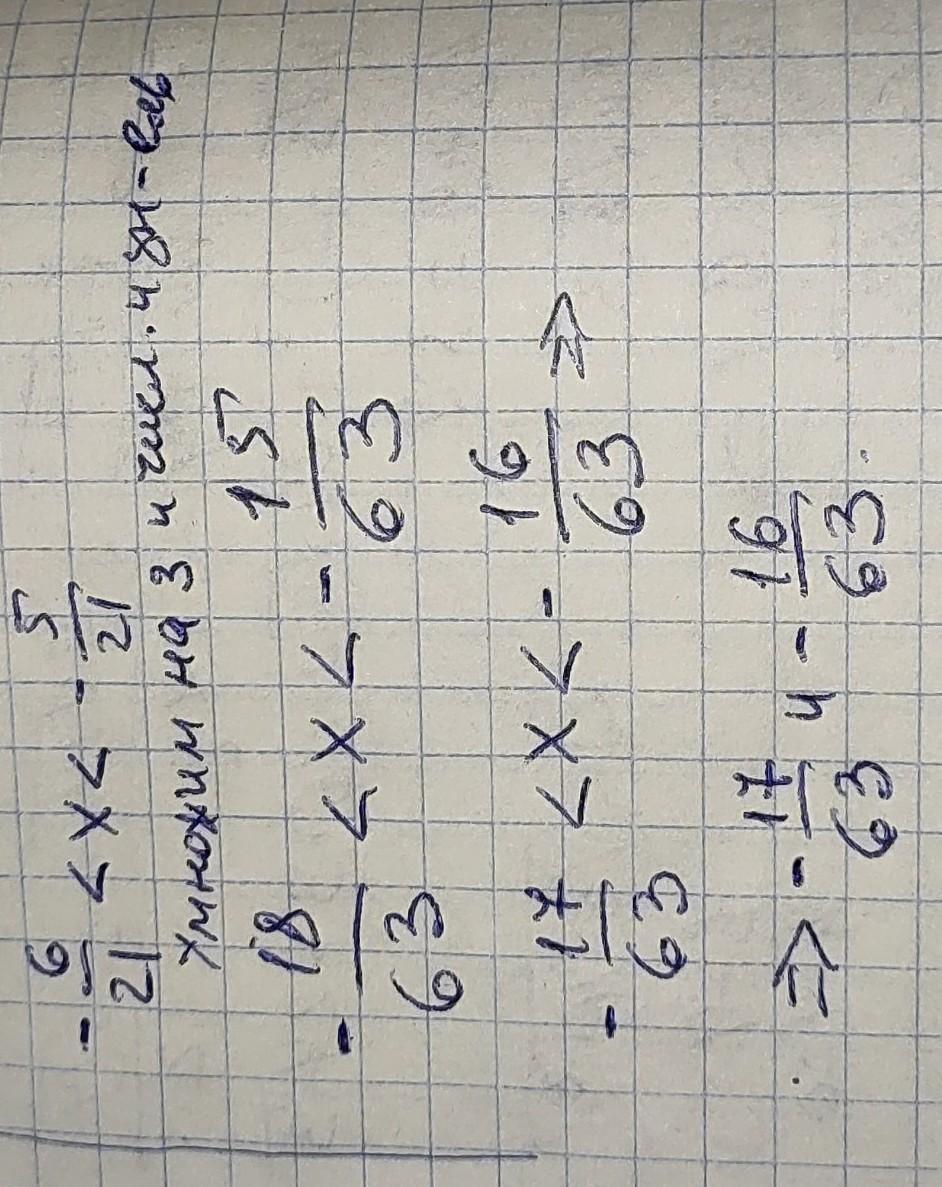 - 6/21 < x < - 5/21
умножим на 3 и числ. и зн-ель
- 18/63 < x < - 15/63
- 17/63 < x < - 16/63 ⇒
⇒ - 17/63 и - 16/63.